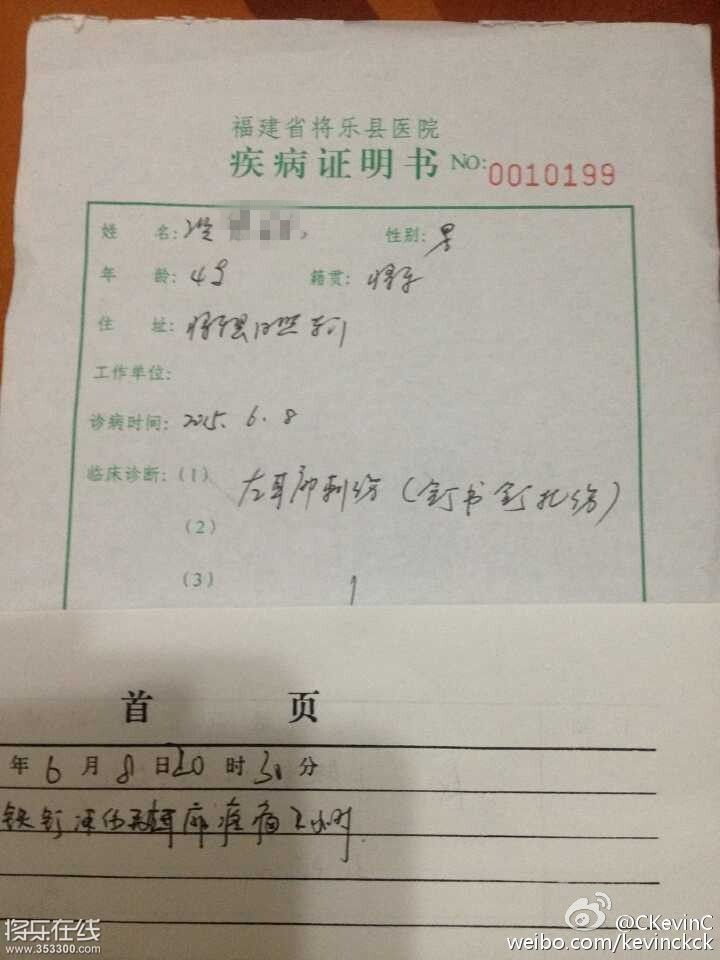 福建省将乐县医院
疾病证明书 NO: 0010199
姓 名: 性别: 男
年 龄: 4岁 籍贯: 将乐
住 址: 将乐县日照东门
工作单位:
诊病时间: 2015. 6. 8
临床诊断: (1) 左耳廓刺伤 (钉书钉扎伤)
(2)
(3)
首 页
年 6 月 8 日 20 时 30 分
铁钉 耳廓疼痛 小时
将乐在线
www.353300.com
@CKevinC
weibo.com/kevinckck